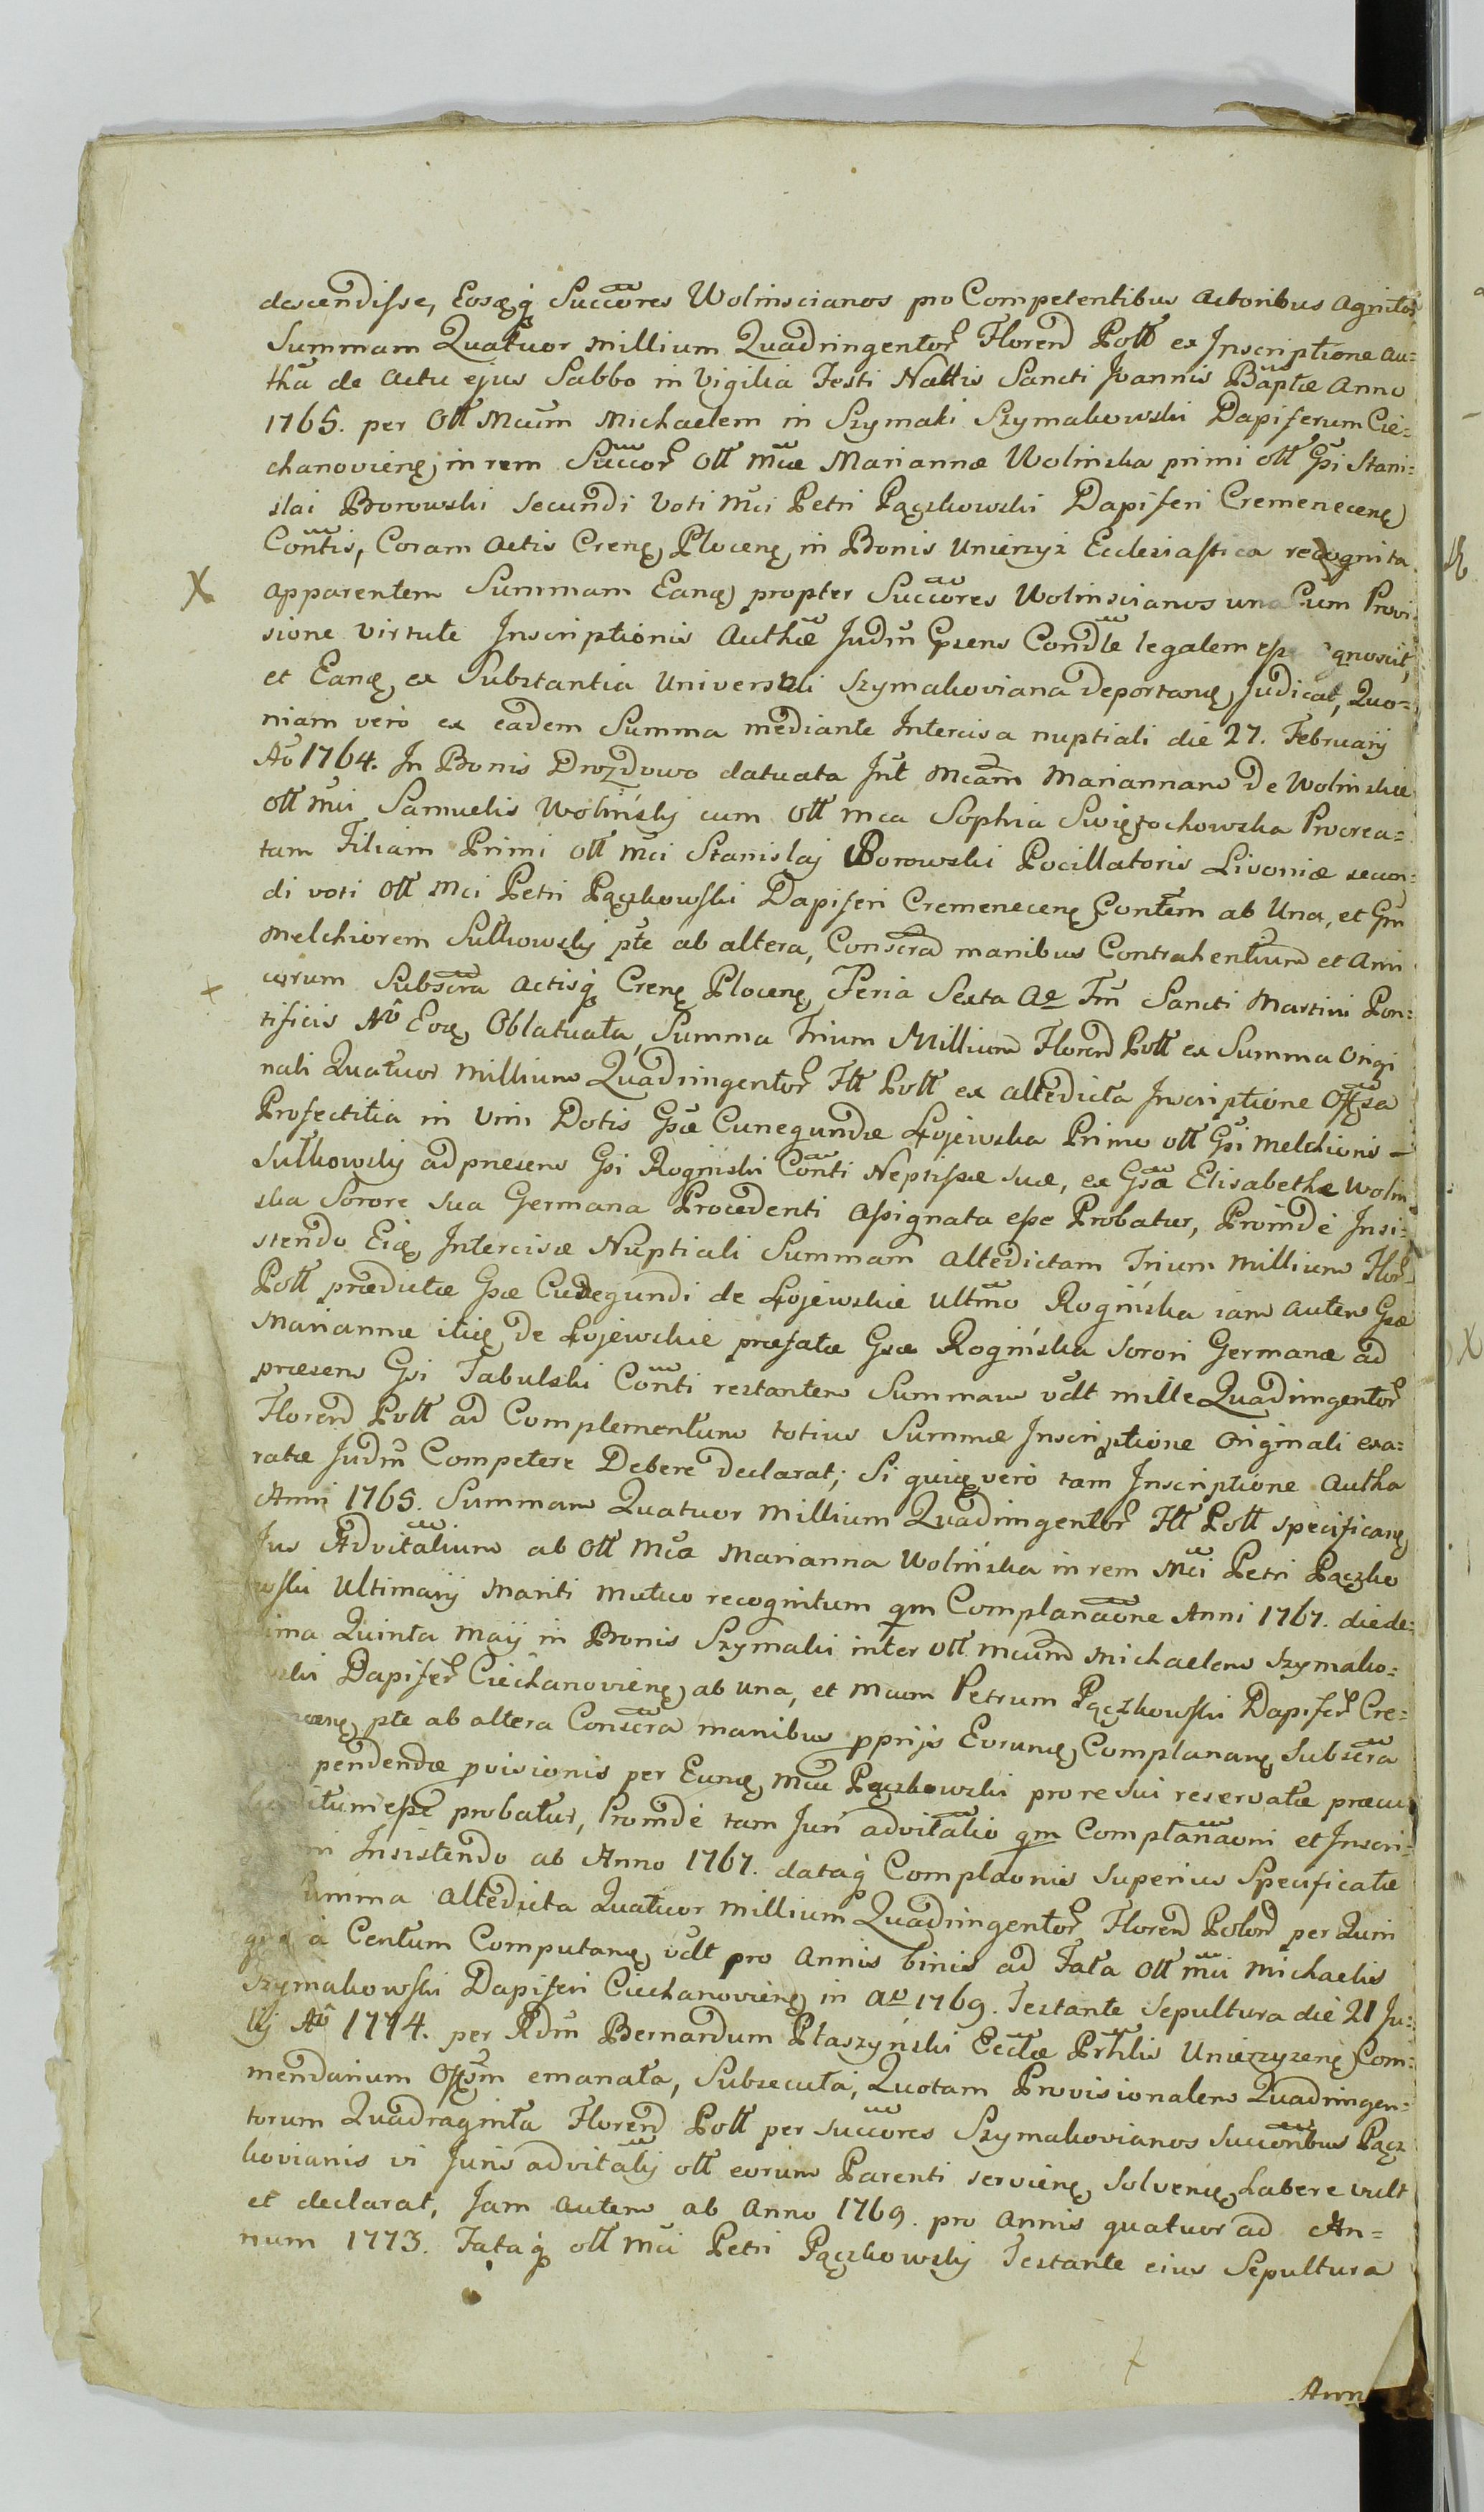 descendisse, Eosqꝫ Succores Wolinscianos pro Competentibus Actoribus agnitos
Summam Quatuor Millium Quadringentor Floren Poll ex Inscriptione au=
tha de actu ejus Sabbo in Vigilia Festi Nattis Sancti Joannis Baptæ Anno
1765. per Oll Mcum Michaelem in Szymaki Szymakowski Dapiferum Cie=
chanoviens, in rem Succor Oll Mcæ Mariannæ Wolinska primi oll Gsi Stani=
slai Borowski secundi Voti Mci Petri Pączkowski Dapiferi Cremenecens
Contis, Coram Actis Crens, Plocens, in Bonis Unierzyż Ecclesiastica recognita
apparentem Summam Eans, propter Succores Wolinscianos una Cum Provi
sione virtute Inscriptionis Authæ Judm Gsens Condle legalem esse gnoscit,
et Eans, ex Substantia Universali Szymakoviana deportans, Judicat, Quo=
niam verò ex eadem Summa mediante Intercisa nuptiali die 27. Februarij
Aō 1764. In Bonis Drozdowo datuata Int Mcam Mariannam De Wolinskie
oll Mci Samuelis Woliński cum Oll Mca Sophia Swięzochowska Procrea=
tam Filiam Primi Oll Mci Stanislaj Borowski Pocillatoris Livoniæ secun=
di voti Oll Mci Petri Pączkowski Dapiferi Cremenecens Contem ab Una, et Gm
Melchiorem Sułkowsky pte ab altera, Conscra manibus Contrahentium et Ami
corum Subscra Actisqꝫ Crens Plocens, Feria Sexta Ae Fm Sancti Martini Pon=
tificis Aō Eos, Oblatuata, Summa Trium Millium Floren Poll ex Summa Origi
nali Quatuor Millium Quadringentor Fll Poll ex altedicta Inscriptione Offsa
Profectitia in Vim Dotis Gsæ Cunegundæ Łojewska Primo oll Gsi Melchioris –
Sułkowsky ad præsens Gsi Roginski Conti Neptissæ suæ, ex Gsa Elisabetha Wolin
ska Sorore sua Germana Procedenti Assignata esse Probatur, Proinde Insi=
stendo Eiqs, Intercisæ Nuptiali Summam altedictam Trium Millium Flor
Poll prædictæ Gsæ Cunegundi de Łojewskie Ultmo Rogińska iam autem Gsæ
Mariannæ itiqs, de Łojewskie præfatæ Gsæ Rogińska Sorori Germanæ ad
præsens Gsi Tabulski Conti restantem Summam vdlt mille Quadringentor
Floren Poll ad Complementum totius Summæ Inscriptione Originali exa=
ratæ Judm Competere Debere declarat; Si quiqs verò tam Inscriptione Autha
Anni 1765. Summam Quatuor Millium Quadringentor Fll Poll specificans,
Jus Advitalium ab Oll Mca Marianna Wolińska in rem Mci Petri Pączko
wski Ultimarij Mariti mutuo recognitum qm Complanaone Anni 1767. die de=
cima Quinta Maij in Bonis Szymaki inter Oll Mcum Michaelem Szymako=
wski Dapifer Ciechanoviens, ab una, et Mcum Petrum Pączkowski Dapifer Cre=
pte ab altera Conscra manibus pprijs Eorums, Complanans, Subscra
pendendæ provisionis per Euns, Mcum Pączkowski pro re sui reservatæ præcu
ditum esse probatur, Proinde tam Juri advitalio qm Complanaoni et Inscri=
Insistendo ab Anno 1767. dataqꝫ Complaonis superius Specificatæ
Summa altedicta Quatuor Millium Quadringentor Floren Polon per Quin
qꝫ à Centum Computans, vdlt pro Annis binis ad Fata Oll Mci Michaelis
Szymakowski Dapiferi Ciechanoviens in ao 1769. Testante Sepultura die 21 Ju=
lij Aō 1774. per Rdm Bernardum Płaszyński Ecclæ Prhlis Unierzyzens Com=
mendarium Offsm emanata, Subsecuta, Quotam Provisionalem Quadringen=
torum Quadraginta Floren Poll per succores Szymakovianos succoribus Pącz
kovianis vi Juris advitalij oll eorum Parenti serviens, Solvens, Habere vult
et declarat, Jam autem ab Anno 1769. pro Annis quatuor ad An=
num 1773. Fataqꝫ oll Mci Petri Pączkowsky Testante eius Sepultura